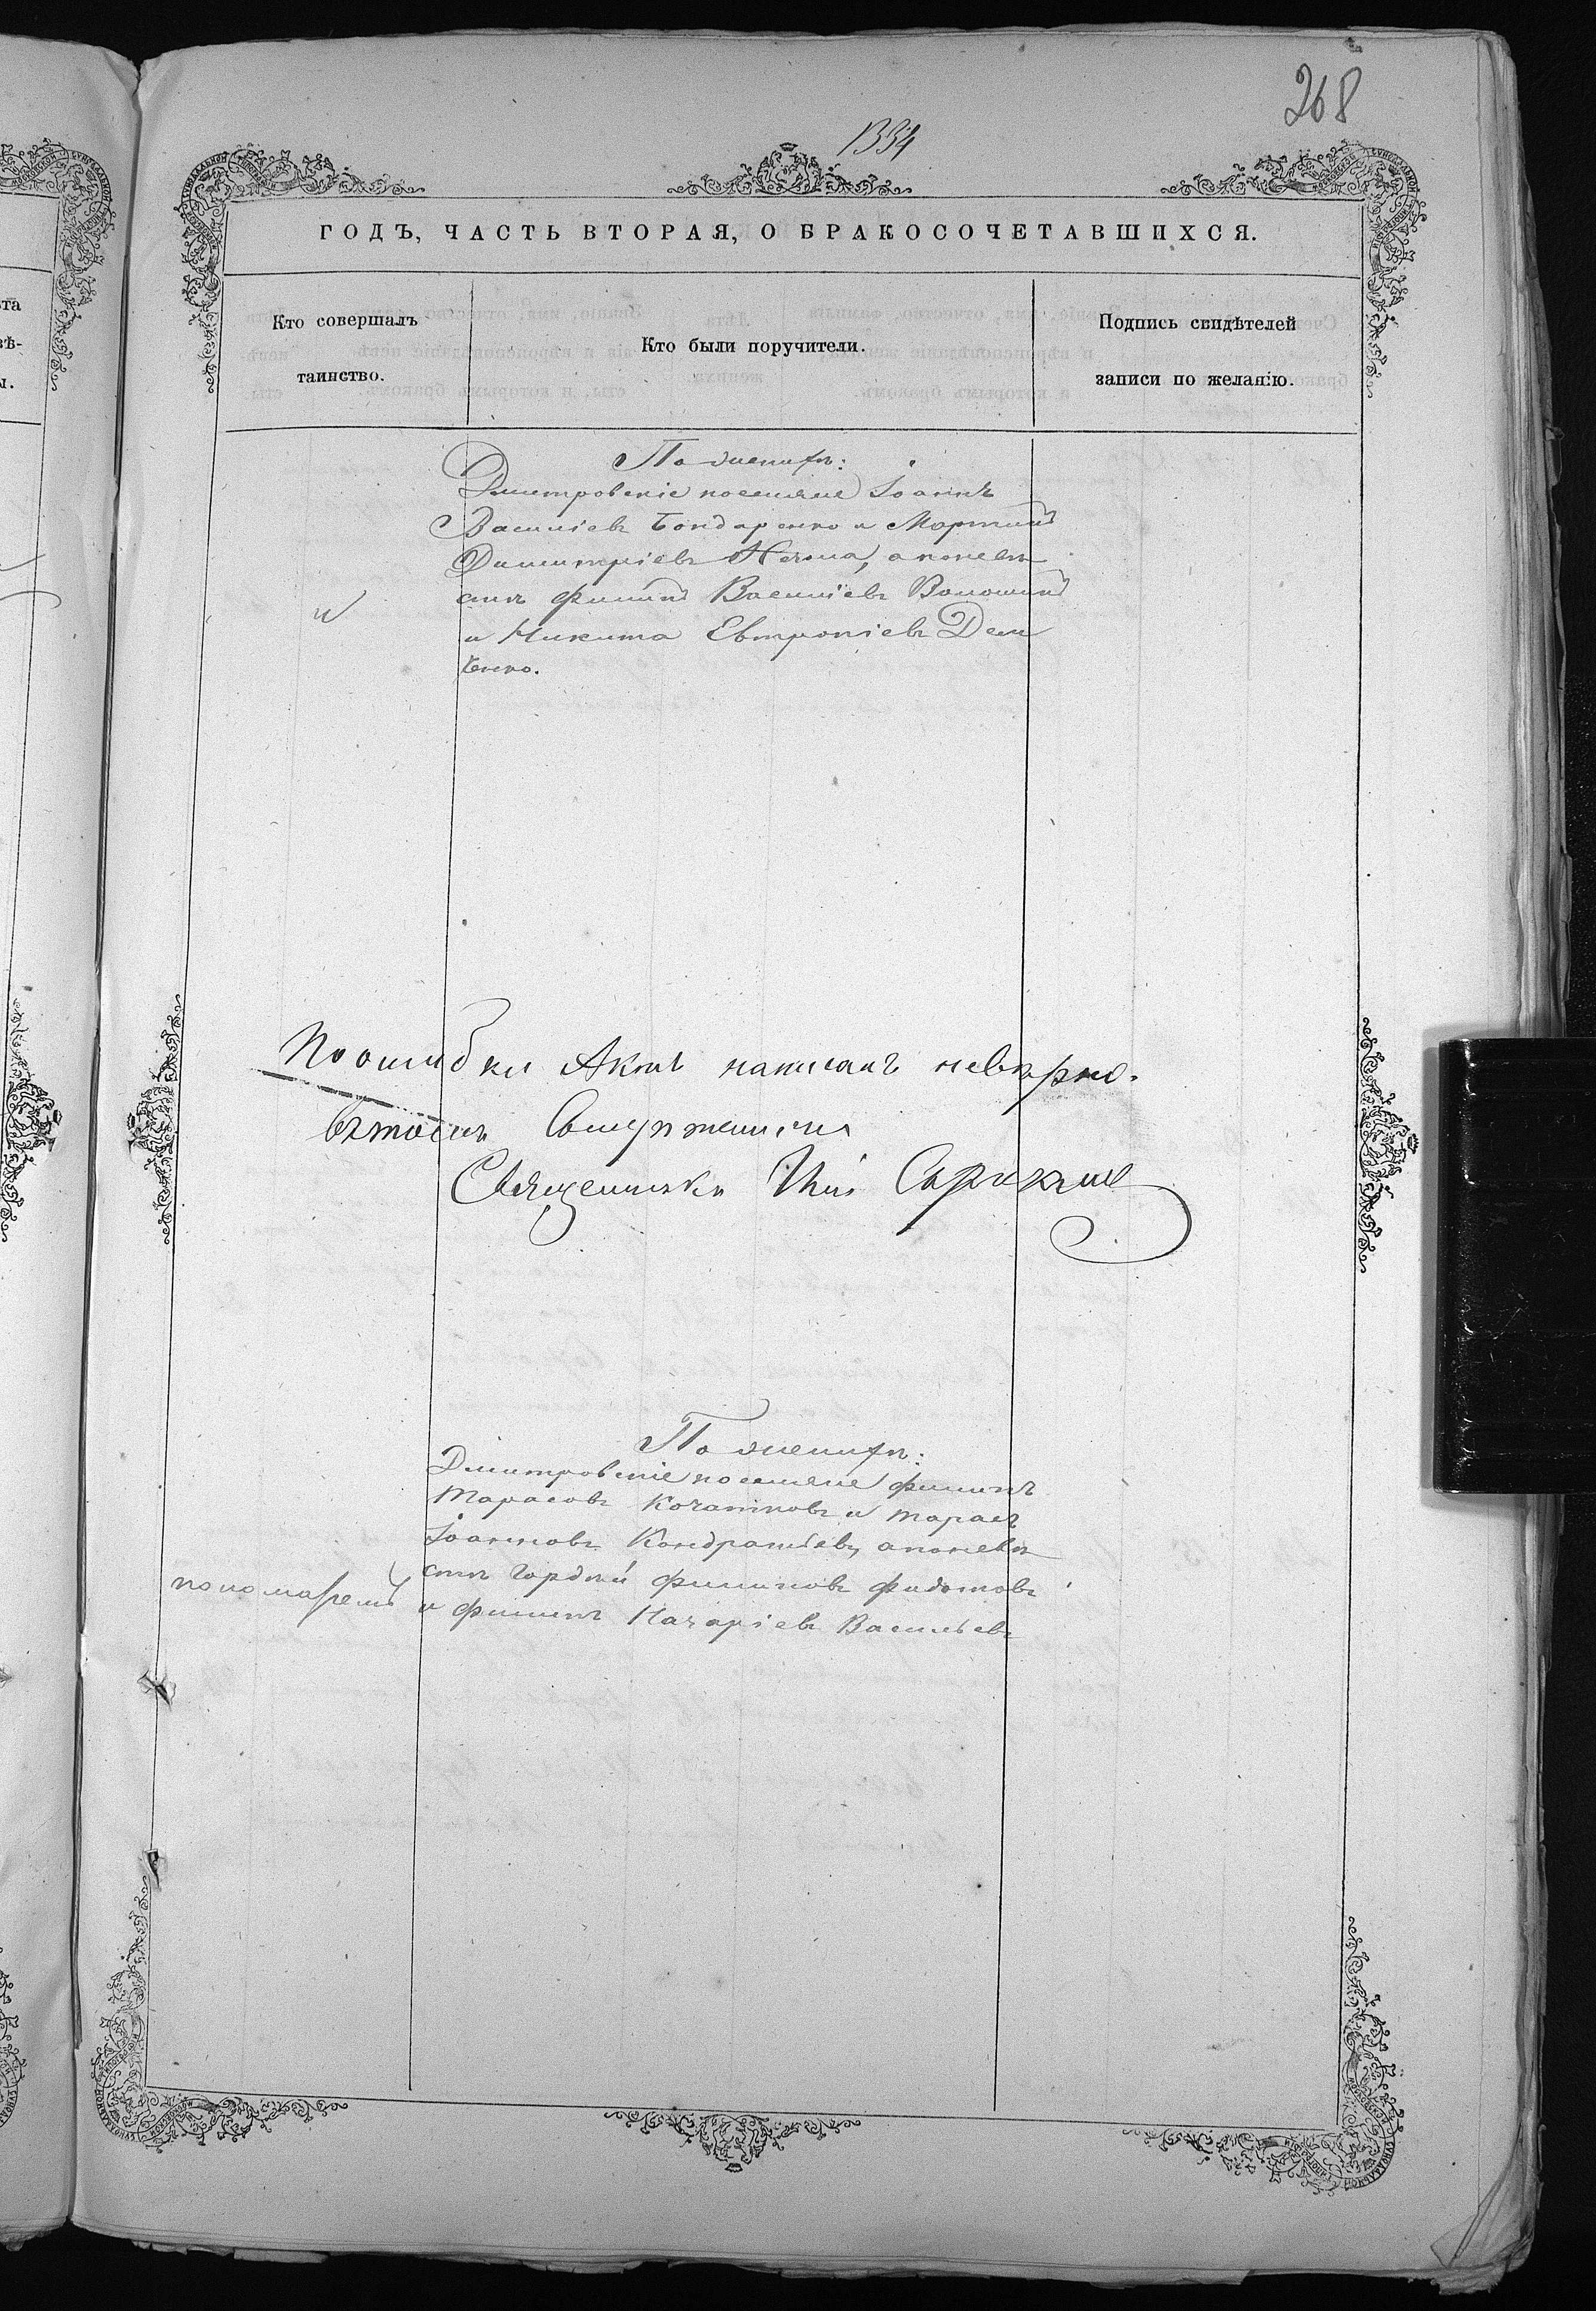 268
1334
ГОДЪ, ЧАСТЬ ВТОРАЯ, О БРАКОСОЧЕТАВШИХСЯ.
Кто совершалъ
таинство.
Кто были поручители.
Подпись свидѣтелей
записи по желанію.
По женихѣ:
Дмитровскіе поселяне Іоаннъ
Василіевъ Бондаренко и Мартинъ
Димитріевъ а по невѣ
стѣ Филипъ Василіевъ Волошинъ
и Никита Евтропіевъ Дем
ченко.
и
По ошибки Актъ написанъ невѣрно.
въ томъ
Священникъ
По женихѣ:
Дмитровскіе поселяне Филипъ
Тарасовъ и Тарасъ
Іоанновъ Кондратьевъ, а по невѣ
стѣ Гордѣй Филиповъ Федотовъ
и Филипъ Назаріевъ Васильевъ
пономаремъ